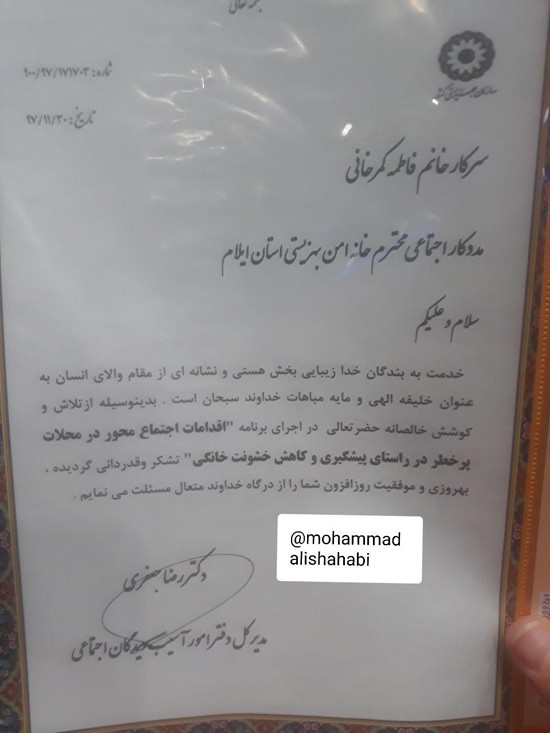 بسمه تعالی
سازمان بهزیستی کشور
شماره: ۹۰۰/۹۷/۱۷۱۷۰۲
تاریخ: ۹۷/۱۱/۳۰
سرکار خانم فاطمه کمرخانی
مددکار اجتماعی محترم خانه امن بهزیستی استان ایلام
سلام و علیکم
خدمت به بندگان خدا زیبایی بخش هستی و نشانه ای از مقام والای انسان به
عنوان خلیفه الهی و مایه مباهات خداوند سبحان است . بدینوسیله ازتلاش و
کوشش خالصانه حضرتعالی در اجرای برنامه "اقدامات اجتماع محور در محلات
پرخطر در راستای پیشگیری و کاهش خشونت خانگی" تشکر وقدردانی گردیده ،
بهروزی و موفقیت روزافزون شما را از درگاه خداوند متعال مسئلت می نمایم .
@mohammad
alishahabi
دکتر رضا جعفری
مدیرکل دفتر امور آسیب دیدگان اجتماعی